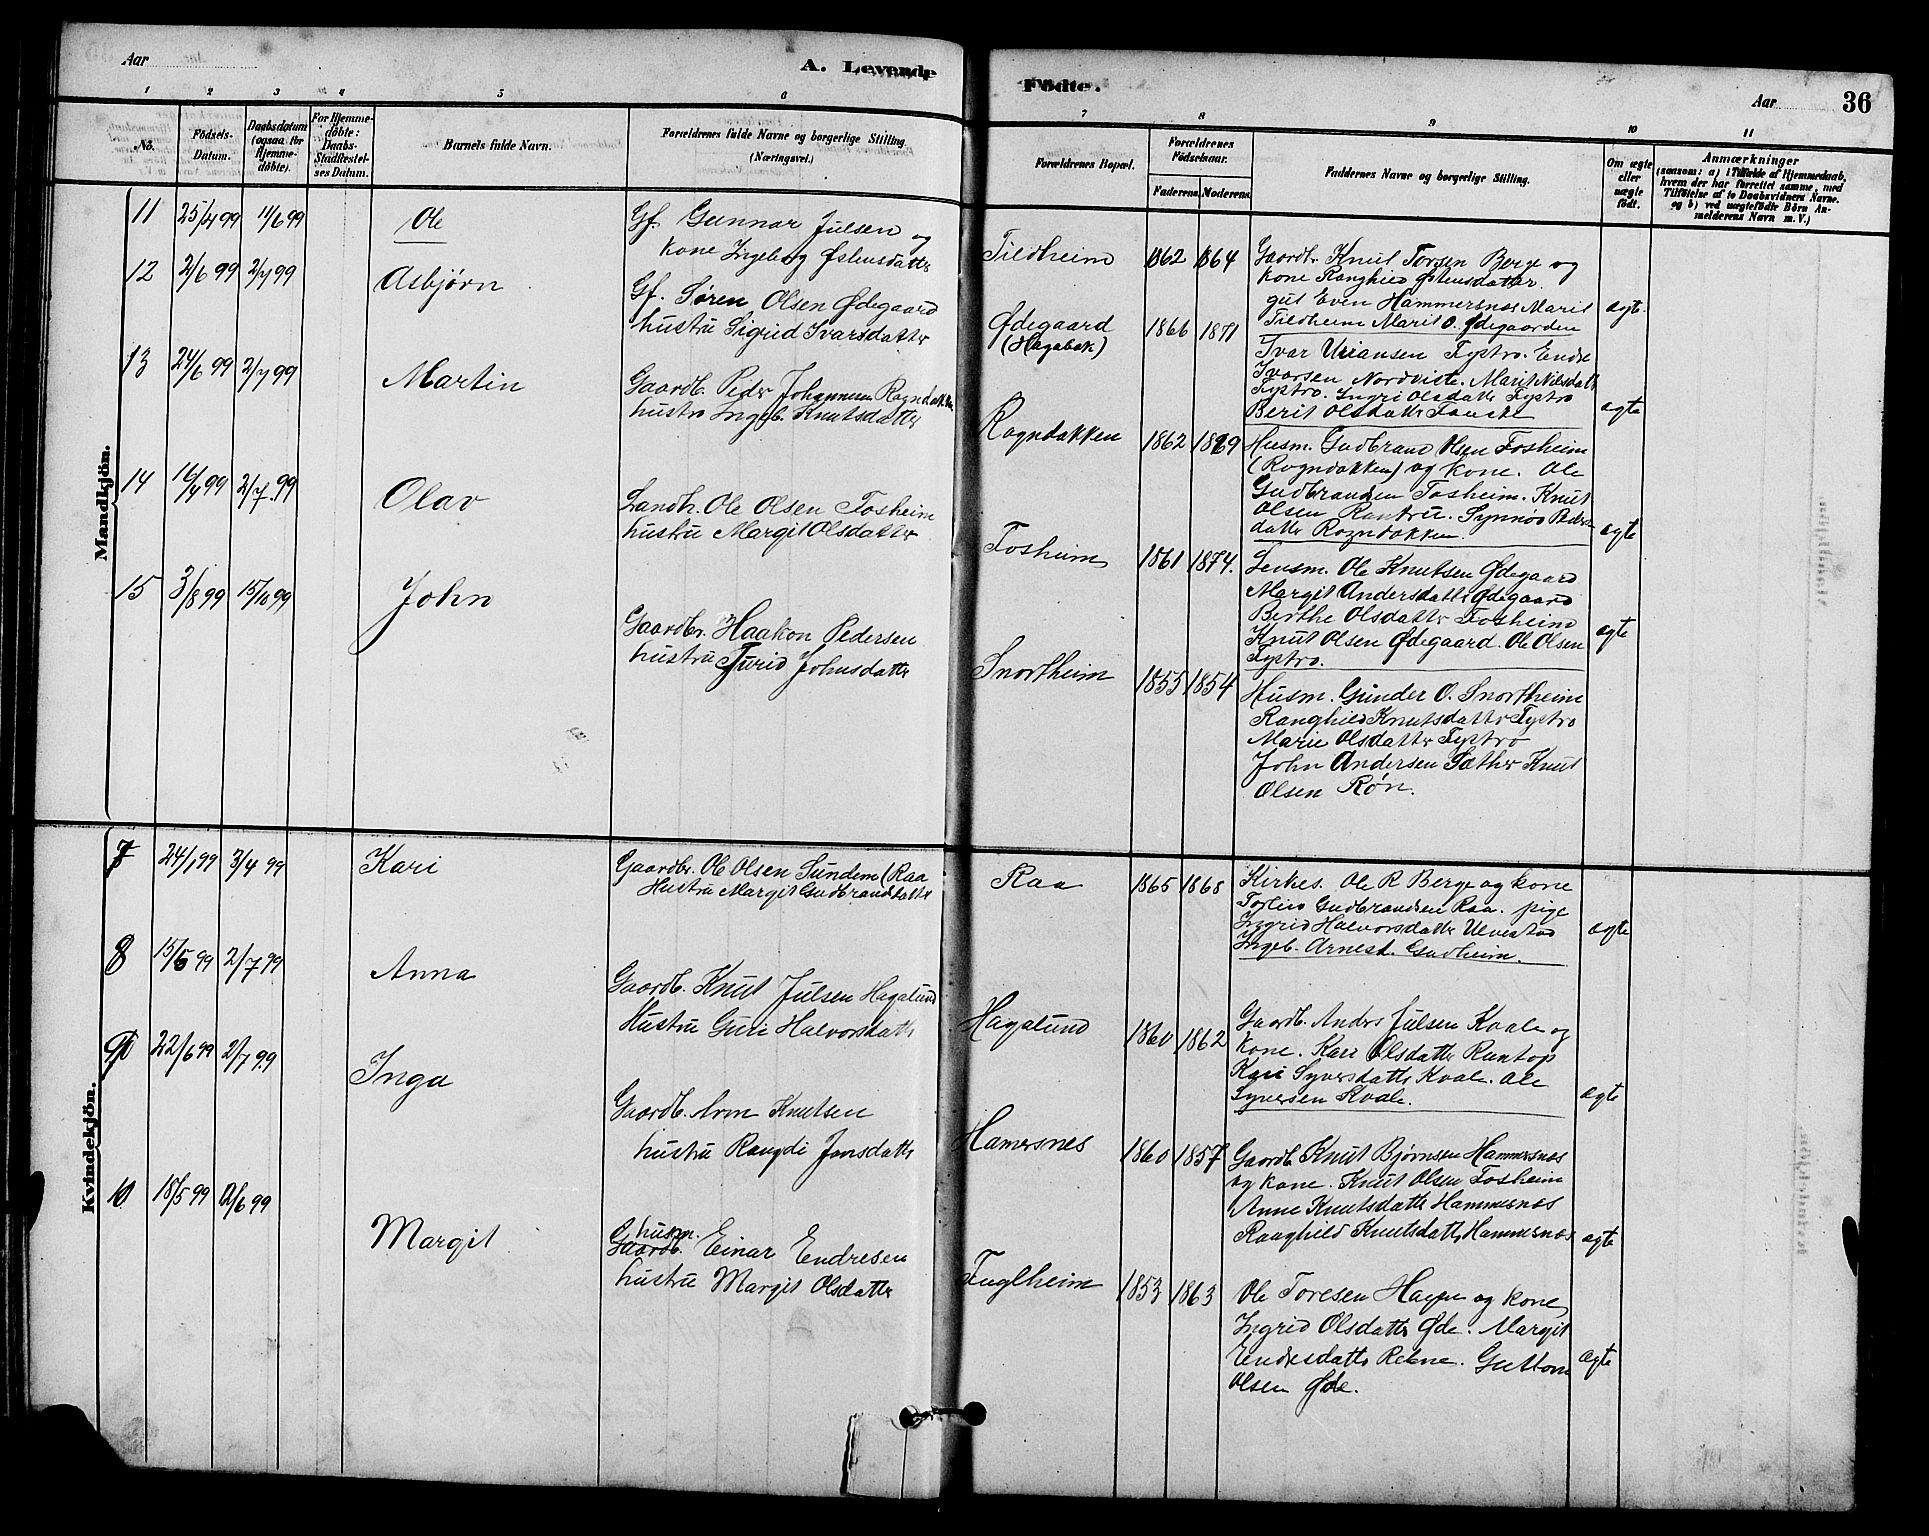 Aar
A. Levende
Fødte.
Aar
36
1 2 3 4 5 6 7 8 9 10 11
No.
Fødsels-
Datum.
Daabsdatum
(ogsaa for
Hjemme-
døbte).
For Hjemme-
døbte:
Daabs-
Stadfæstel-
ses Datum.
Barnets fulde Navn.
Forældrenes fulde Navne og borgerlige Stilling
(Næringsvei.)
Forældrenes Bopæl.
Forældrenes
Fødselsaar.
Faderens. Moderens.
Faddernes Navne og borgerlige Stilling.
Om ægte
eller
uægte
født.
Anmærkninger
(saasom: a) i Tilfælde af Hjemmedaab,
hvem der har forrettet samme, med
Tilføielse af to Daabsvidners Navne.
og b) ved uægtefødte Børn An-
melderens Navn m. V.)
Mandkjøn.
11 25/4 99 11/6 99 Ole
Gf. Gunnar Julsen og
kone Ingebog Østensdatter
Tildheim 1862 1864
Gaardb. Knut Torsen Berge og
kone Ranghild Østensdatter.
gut Even Hammersnæs Marit
Tildheim Marit O. Ødegaarden
ægte.
12 2/6 99 2/7 99 Asbjørn
Gf. Søren Olsen Ødegaard
hustru Sigrid Ivarsdatter
Ødegaard
(Hagabak)
1866 1871
Ivar Uriansen Fystro. Endre
Ivarsen Nordviste. Marit Nilsdatt
Fystro. Ingri Olsdatter Fystro
Berit Olsdatter Fauske
ægte
13 24/6 99 2/7 99 Martin
Gaardb. Peder Johannesen Rogndokken
hustro Ingeb. Knutsdatter
Rogndokken 1862 1869
Husm. Gudbrand Olsen Fosheim
(Rogndokken) og kone. Ole
Gudbrandsen Fosheim. Knut
Olsen Rantru. Synnøv Peders
datter Rogndokken.
ægte
14 16/4 99 2/7 99 Olav
Landh. Ole Olsen Fosheim
hustru Margit Olsdatter
Fosheim 1861 1874.
Lensm. Ole Knutsen Ødegaard
Margit Andersdatter Ødegaard
Berthe Olsdatter Fosheim
Knut Olsen Ødegaard. Ole Olsen
Fystro.
ægte
15 3/8 99 15/10 99 John
Gaardbr. Haakon Pedersen
hustru Turid Johnsdatter
Snortheim 1855 1854
Husm. Gunder O. Snortheim
Ranghild Knutsdatter Fystro
Marie Olsdatter Fystro
John Andersen Sæther Knut
Olsen Røn.
Kvindekjøn.
7 24/1 99 3/4 99 Kari
Gaardbr. Ole Olsen Sundem (Raa
Hustru Margit Gudbrandsdatter
Raa 1865 1868
Kirkes. Ole R Berge og kone
Gudbrandsen Raa. pige
Ingrid Halvorsdatter Ulvestad
Ingeb. Arnesd. Gudheim.
ægte
8 15/5 99 2/7 99 Anna
Gaardb. Knut Julsen Hagalund
Hustru Guri Halvorsdatter
Hagalund 1860 1862
Gaardb. Anders Julsen Kvale og
kone. Kari Olsdatter Runtop
Kari Syversdatter Kvale. Ole
Syversen Kvale.
ægte
9 22/6 99 2/7 99 Inga
Gaardb. Arne Knutsen
hustru Rangdi Jonsdatter
Hamersnes 1860 1857
Gaardb. Knut Bjørnsen Hammersnæs
og kone. Knut Olsen Fosheim
Anne Knutsdatter Hammersnæs
Ranghild Knutsdatter Hammersnæs
ægte
10 18/5 99 2/6 99 Margit
husm.
Gaardb. Einar Endresen
hustru Margit Olsdatter
Fuglheim 1853 1863
Ole Toresen Hagen og kone
Ingrid Olsdatter Øde. Margit
Endresdatter Reine. Guttorm
Olsen Øde.
ægte